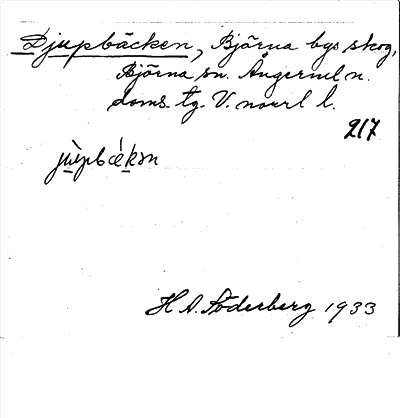 Djupbäcken, Björna bys skog,
Björna sn. Ångerml n.
doms. tg. V. norrl l.
217
jùpbćkən
H A. Söderberg 1933